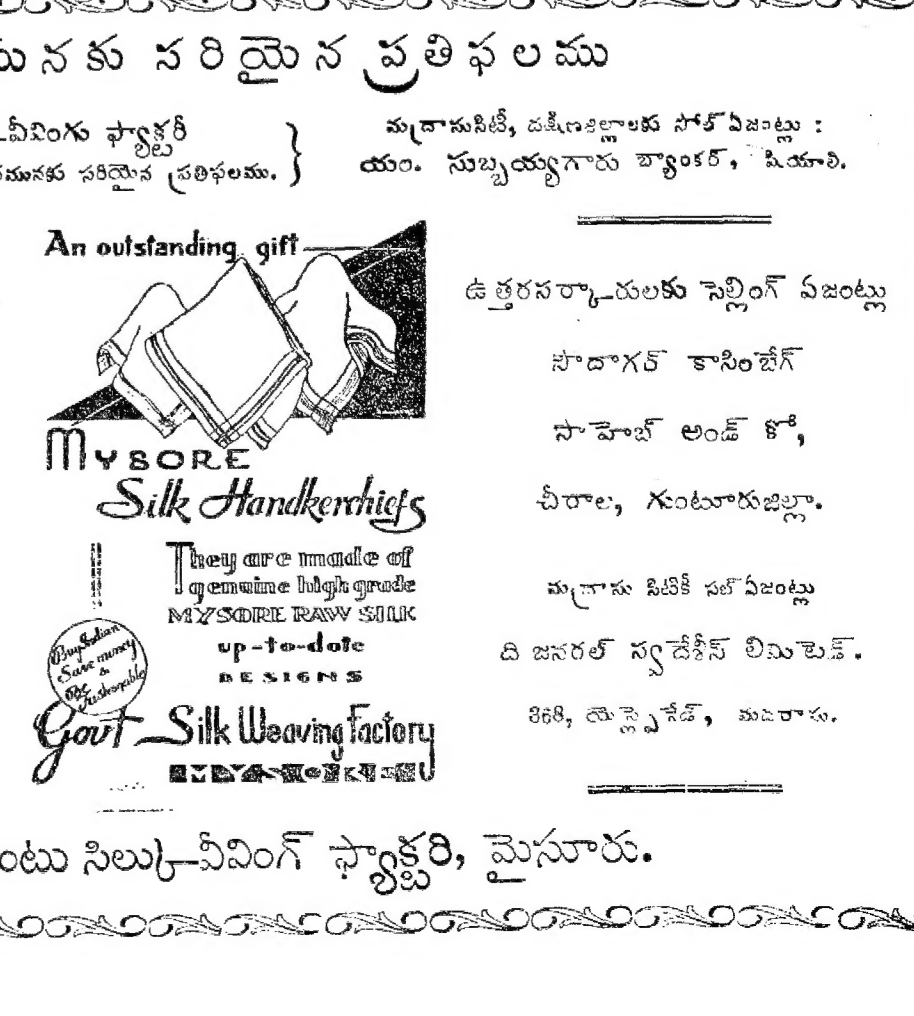 మనకు సరియైన ప్రతిఫలము
వీవింగు ఫ్యాక్టరీ
మునకు సరియైన ప్రతిఫలము.
మద్రాసుసిటీ, దక్షిణజిల్లాలకు సోల్ ఏజంట్లు :
యం. సుబ్బయ్యగారు బ్యాంకర్, షియాలి.
An outstanding gift
MYSORE
Silk Handkerchiefs
They are made of
genuine high grade
MYSORE RAW SILK
up-to-date
DESIGNS
Buy Indian
Save money
&
Be Fashionable
Govt Silk Weaving Factory
MYSORE
ఉత్తరసర్కారులకు సెల్లింగ్ ఏజంట్లు
సౌదాగర్ కాసింబేగ్
సాహెబ్ అండ్ కో,
చీరాల, గుంటూరుజిల్లా.
మద్రాసు సిటీకి సబ్ ఏజంట్లు
ది జనరల్ స్వదేశీస్ లిమిటెడ్.
368, యెస్ప్లెనేడ్, మదరాసు.
ంటు సిల్కు వీవింగ్ ఫ్యాక్టరి, మైసూరు.